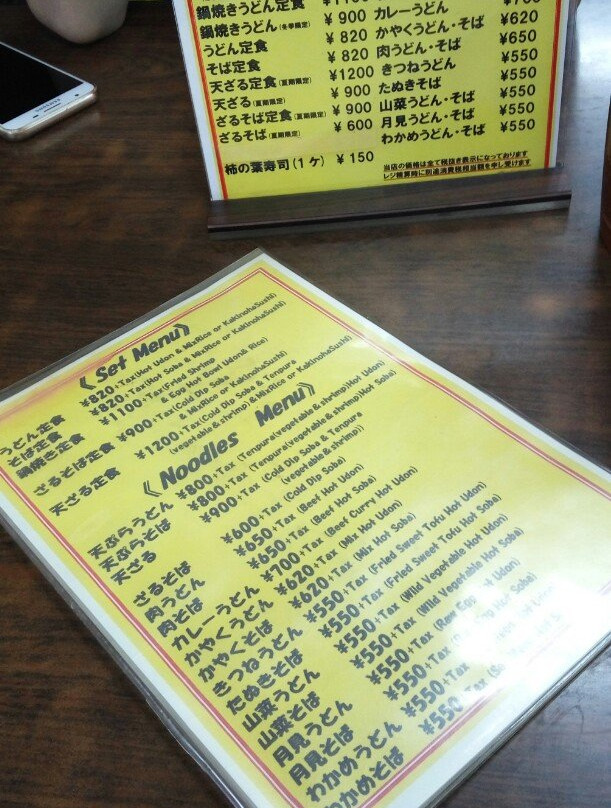 鍋焼きうどん定食
鍋焼きうどん(冬季限定) ¥900
うどん定食 ¥820
そば定食 ¥820
天ざる定食(夏期限定) ¥1200
天ざる(夏期限定) ¥900
ざるそば定食(夏期限定) ¥900
ざるそば(夏期限定) ¥600
柿の葉寿司(1ケ) ¥150
カレーうどん
かやくうどん・そば ¥620
肉うどん・そば ¥650
きつねうどん ¥550
たぬきそば ¥550
山菜うどん・そば ¥550
月見うどん・そば ¥550
わかめうどん・そば ¥550
当店の価格は全て税抜き表示になっております
レジ精算時に別途消費税相当額を申し受けます
SAMSUNG
《Set Menu》
うどん定食 ¥820+Tax(Hot Udon & MixRice or KakinohaSushi)
そば定食 ¥820+Tax(Hot Soba & MixRice or KakinohaSushi)
鍋焼き定食 ¥1100+Tax(Fried Shrimp
& Egg Hot Bowl Udon& Rice)
ざるそば定食 ¥900+Tax(Cold Dip Soba
& MixRice or KakinohaSushi)
天ざる定食 ¥1200+Tax(Cold Dip Soba & Tenpura
(vegetable&shrimp)&MixRice or KakinohaSushi)
《Noodles Menu》
天ぷらうどん ¥800+Tax (Tenpura(vegetable&shrimp)Hot Udon)
天ぷらそば ¥800+Tax (Tenpura(vegetable&shrimp)Hot Soba)
天ざる ¥900+Tax (Cold Dip Soba & Tenpura
(vegetable&shrimp))
ざるそば ¥600+Tax (Cold Dip Soba)
肉うどん ¥650+Tax (Beef Hot Udon)
肉そば ¥650+Tax (Beef Hot Soba)
カレーうどん ¥700+Tax (Beef Curry Hot Udon)
かやくうどん ¥620+Tax (Mix Hot Udon)
かやくそば ¥620+Tax (Mix Hot Soba)
きつねうどん ¥550+Tax (Fried Sweet Tofu Hot Udon)
たぬきそば ¥550+Tax (Fried Sweet Tofu Hot Soba)
山菜うどん ¥550+Tax (Wild Vegetable Hot Udon)
山菜そば ¥550+Tax (Wild Vegetable Hot Soba)
月見うどん ¥550+Tax (Raw Egg Hot Udon)
月見そば ¥550+Tax Hot Soba)
わかめうどん ¥550+Tax
わかめそば ¥550+Tax